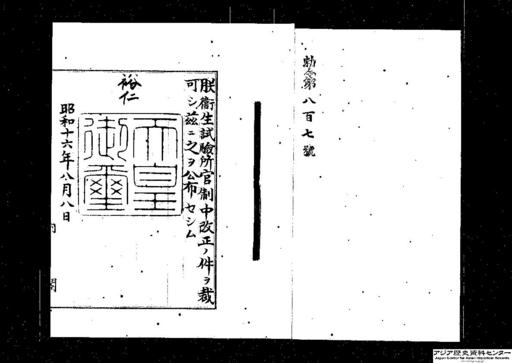 勅令第八百七號
朕衞生試驗所官制中改正ノ件ヲ裁
可シ茲ニ之ヲ公布セシム
裕仁
天皇御璽
昭和十六年八月八日
アジア歴史資料センター
Japan Center for Asian Historical Records